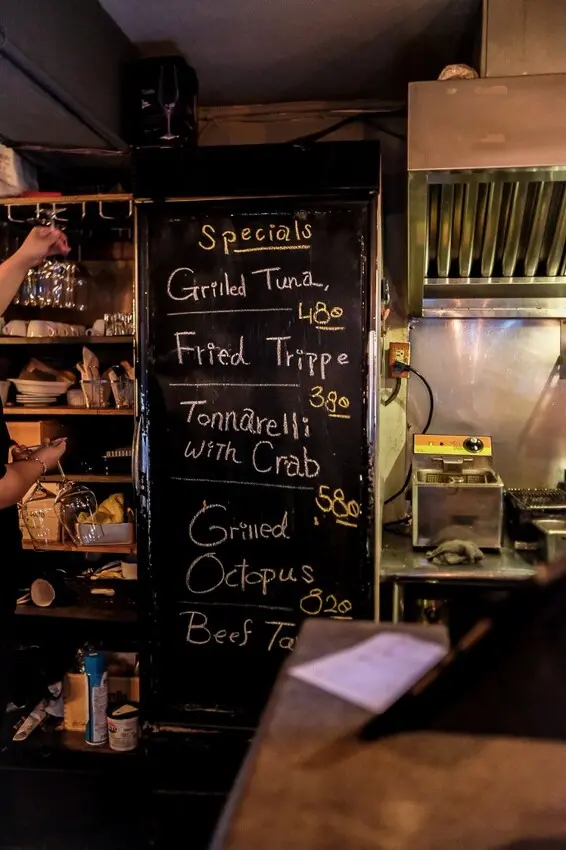 Specials
Grilled Tuna,
480
Fried Trippe
380
Tonnarelli
with Crab
580
Grilled
Octopus
820
Beef Ta